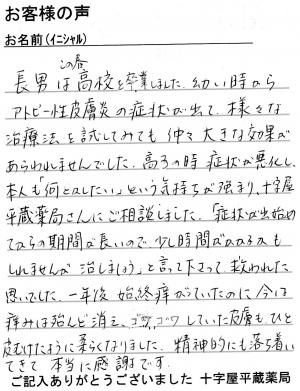 お客様の声
お名前(イニシャル)
この春
長男は高校を卒業しました。幼い時から
アトピー性皮膚炎の症状が出て、様々な
治療法を試してみても仲々大きな効果が
あらわれませんでした。高3の時症状が悪化し、
本人も「何とかしたい」という気持ちが強まり、十字屋
平蔵薬局さんにご相談しました。「症状が出始め
てからの期間が長いので少し時間がかかるかも
しれませんが治しましょう」と言って下さって、救われた
思いでした。一年後 始終痒がっていたのに今は
痒みは殆んど消え、ゴワゴワしていた皮膚もひと
皮むけたように柔らくなりました。精神的にも落ち着い
てきて本当に感謝です。
ご記入ありがとうございました 十字屋平蔵薬局